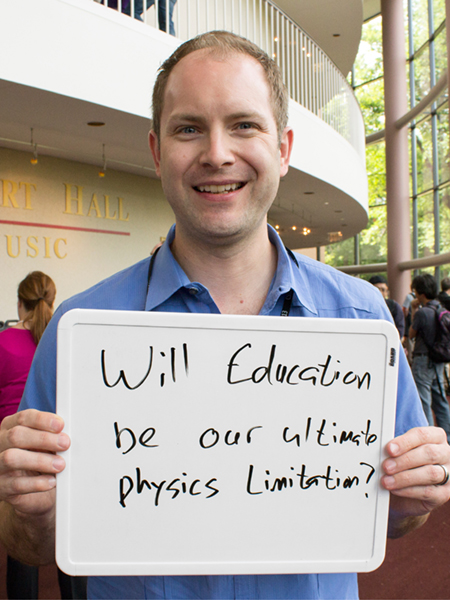 RT HALL
USIC
Will Education
be our ultimate
physics Limitation?